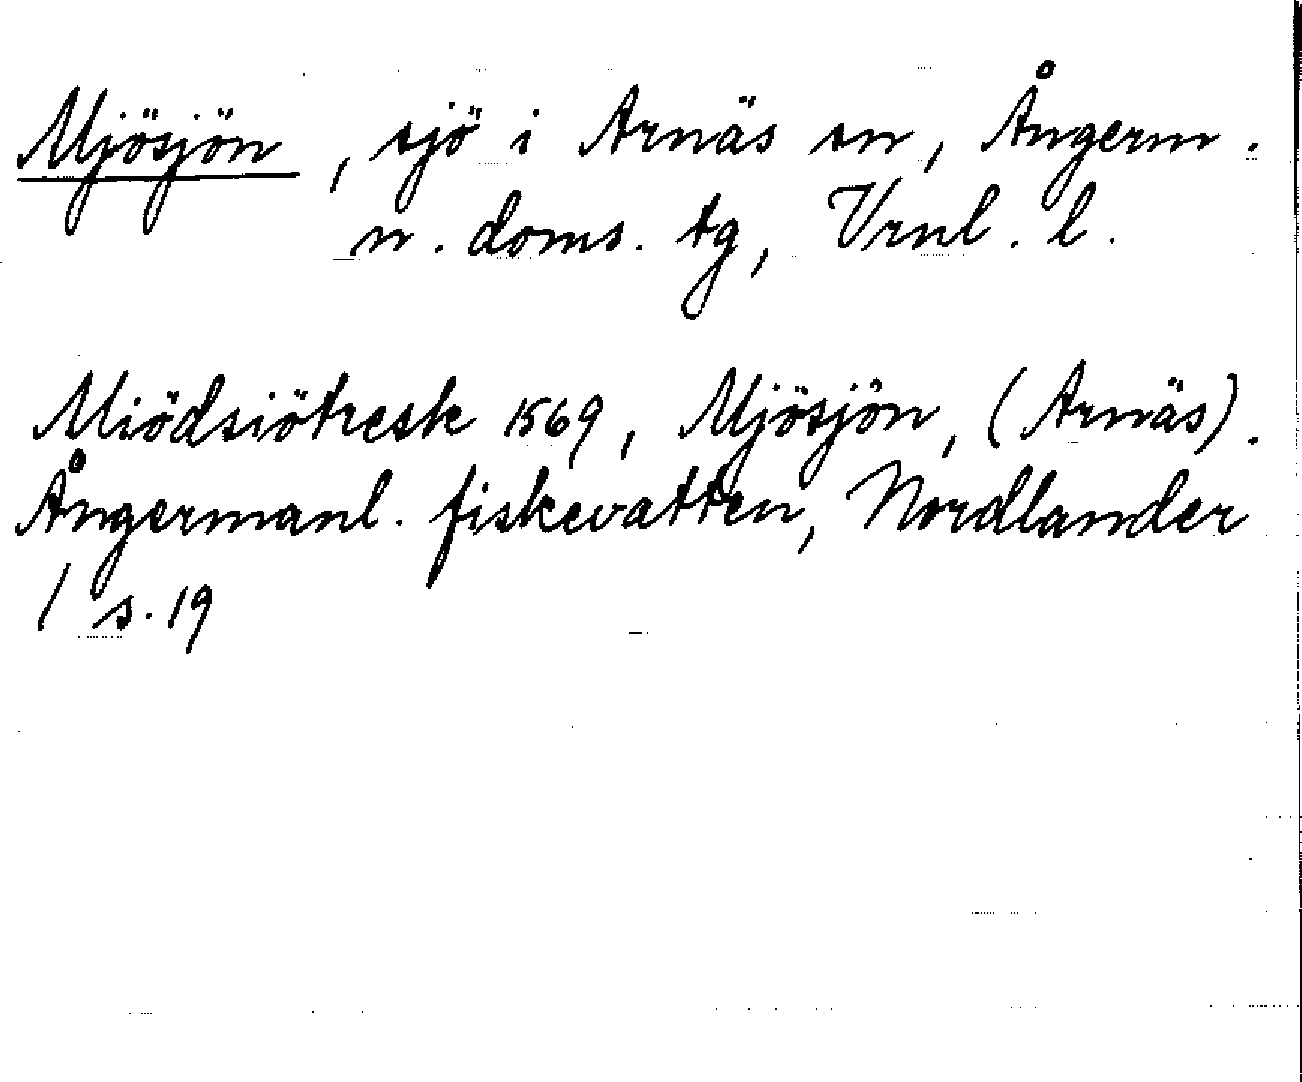 Mjösjön, sjö i Arnäs sn, Ångerm.
n. doms. tg, Vrnl. l.
Miödsiötresk 1569, Mjösjön, (Arnäs).
Ångermanl. fiskevatten, Nordlander
I s. 19